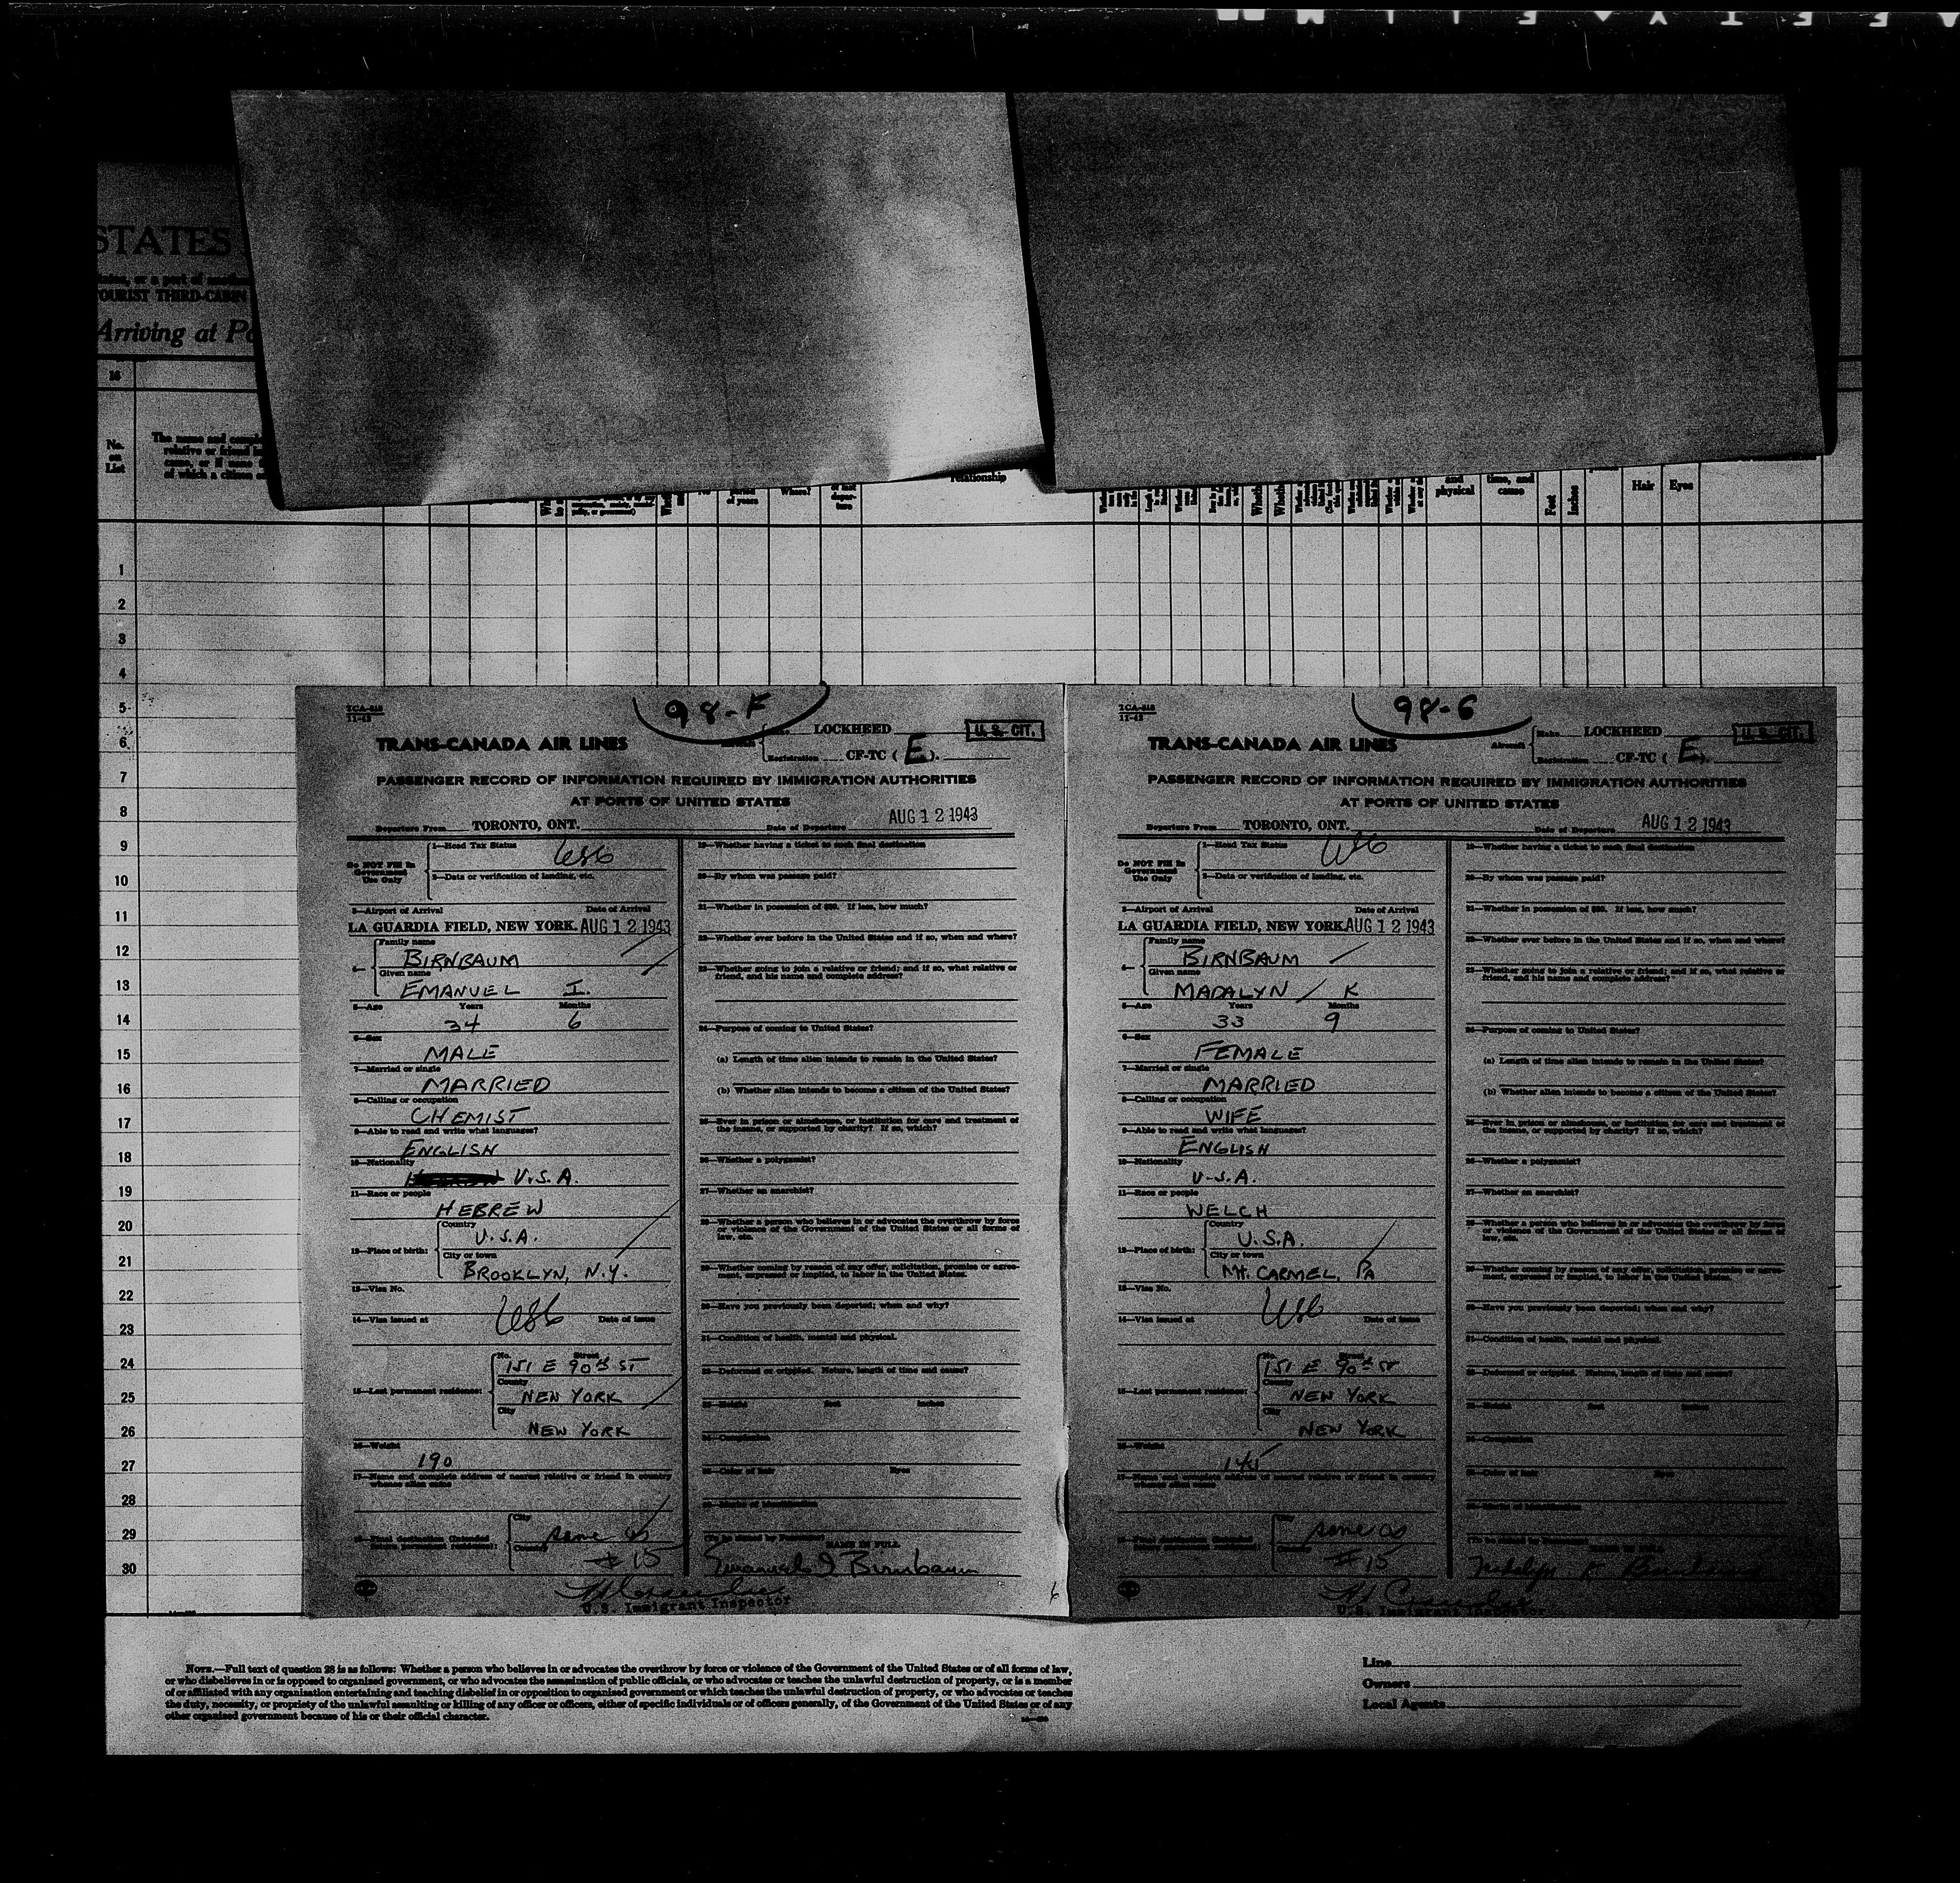 STATES
TOURIST THIRD-CABIN
Arriving at Po
16
No.
on
List
relationship
of years
Where?
and
physical
time, and
cause
Feet
Inches
Hair
Eyes
1
2
3
4
5
6
7
8
9
10
11
12
13
14
15
16
17
18
19
20
21
22
23
24
25
26
27
28
29
30
98-F
11-42
LOCKHEED
U. S. CIT.
TRANS-CANADA AIR LINES
Registration CF-TC ( E ).
PASSENGER RECORD OF INFORMATION REQUIRED BY IMMIGRATION AUTHORITIES
AT PORTS OF UNITED STATES
Departure From TORONTO, ONT. Date of Departure AUG 12 1943
Do NOT Fill In
Government
Use Only
1—Head Tax Status
2—Date or verification of landing, etc.
3—Airport of Arrival Date of Arrival
LA GUARDIA FIELD, NEW YORK. AUG 12 1943
4—
Family name
BIRNBAUM
Given name
EMANUEL I.
5—Age Years Months
34 6
6—Sex
MALE
7—Married or single
MARRIED
8—Calling or occupation
CHEMIST
9—Able to read and write what languages?
ENGLISH
10—Nationality
U.S.A.
11—Race or people
HEBREW
12—Place of birth:
Country
U.S.A.
City or town
BROOKLYN, N.Y.
13—Visa No.
14—Visa issued at Date of issue
15—Last permanent residence:
No. Street
151 E 90th ST
County
NEW YORK
City
NEW YORK
16—Weight
190
17—Name and complete address of nearest relative or friend in country
whence alien came
18—Final destination (Intended
future permanent residence):
City
same as
Country
# 15
19—Whether having a ticket to such final destination
20—By whom was passage paid?
21—Whether in possession of $50. If less, how much?
22—Whether ever before in the United States and if so, when and where?
23—Whether going to join a relative or friend; and if so, what relative or
friend, and his name and complete address?
24—Purpose of coming to United States?
(a) Length of time alien intends to remain in the United States?
(b) Whether alien intends to become a citizen of the United States?
25—Ever in prison or almshouse, or institution for care and treatment of
the insane, or supported by charity? If so, which?
26—Whether a polygamist?
27—Whether an anarchist?
28—Whether a person who believes in or advocates the overthrow by force
or violence of the Government of the United States or all forms of
law, etc.
29—Whether coming by reason of any offer, solicitation, promise or agree-
ment, expressed or implied, to labor in the United States.
30—Have you previously been deported; when and why?
31—Condition of health, mental and physical.
32—Deformed or crippled. Nature, length of time and cause?
33—Height feet inches
34—Complexion
35—Color of hair Eyes
36—Marks of identification
(To be signed by Passenger)
NAME IN FULL
Emanuel I Birnbaum
U.S. Immigrant Inspector
98-G
11-42
Make LOCKHEED
U. S. CIT.
TRANS-CANADA AIR LINES
Aircraft
Registration CF-TC ( E ).
PASSENGER RECORD OF INFORMATION REQUIRED BY IMMIGRATION AUTHORITIES
AT PORTS OF UNITED STATES
Departure From TORONTO, ONT. Date of Departure AUG 12 1943
Do NOT Fill In
Government
Use Only
1—Head Tax Status
2—Date or verification of landing, etc.
3—Airport of Arrival Date of Arrival
LA GUARDIA FIELD, NEW YORK. AUG 12 1943
4—
Family name
BIRNBAUM
Given name
MADALYN K
5—Age Years Months
33 9
6—Sex
FEMALE
7—Married or single
MARRIED
8—Calling or occupation
WIFE
9—Able to read and write what languages?
ENGLISH
10—Nationality
U.S.A.
11—Race or people
WELCH
12—Place of birth:
Country
U.S.A.
City or town
MT. CARMEL, PA
13—Visa No.
14—Visa issued at Date of issue
15—Last permanent residence:
No. Street
151 E 90th ST
County
NEW YORK
City
NEW YORK
16—Weight
145
17—Name and complete address of nearest relative or friend in country
whence alien came
City
same as
# 15
19—Whether having a ticket to such final destination
20—By whom was passage paid?
21—Whether in possession of $50. If less, how much?
22—Whether ever before in the United States and if so, when and where?
23—Whether going to join a relative or friend; and if so, what relative or
friend, and his name and complete address?
24—Purpose of coming to United States?
(a) Length of time alien intends to remain in the United States?
(b) Whether alien intends to become a citizen of the United States?
25—Ever in prison or almshouse, or institution for care and treatment of
the insane, or supported by charity? If so, which?
26—Whether a polygamist?
27—Whether an anarchist?
28—Whether a person who believes in or advocates the overthrow by force
or violence of the Government of the United States or all forms of
law, etc.
29—Whether coming by reason of any offer, solicitation, promise or agree-
ment, expressed or implied, to labor in the United States.
30—Have you previously been deported; when and why?
31—Condition of health, mental and physical.
32—Deformed or crippled. Nature, length of time and cause?
33—Height feet inches
34—Complexion
35—Color of hair Eyes
36—Marks of identification
U.S. Immigrant Inspector
NOTE.—Full text of question 28 is as follows: Whether a person who believes in or advocates the overthrow by force or violence of the Government of the United States or of all forms of law,
or who disbelieves in or is opposed to organized government, or who advocates the assassination of public officials, or who advocates or teaches the unlawful destruction of property, or is a member
of or affiliated with any organization entertaining and teaching disbelief in or opposition to organized government or which teaches the unlawful destruction of property, or who advocates or teaches
the duty, necessity, or propriety of the unlawful assaulting or killing of any officer or officers, either of specific individuals or of officers generally, of the Government of the United States or of any
other organized government because of his or their official character.
Line
Owners
Local Agents